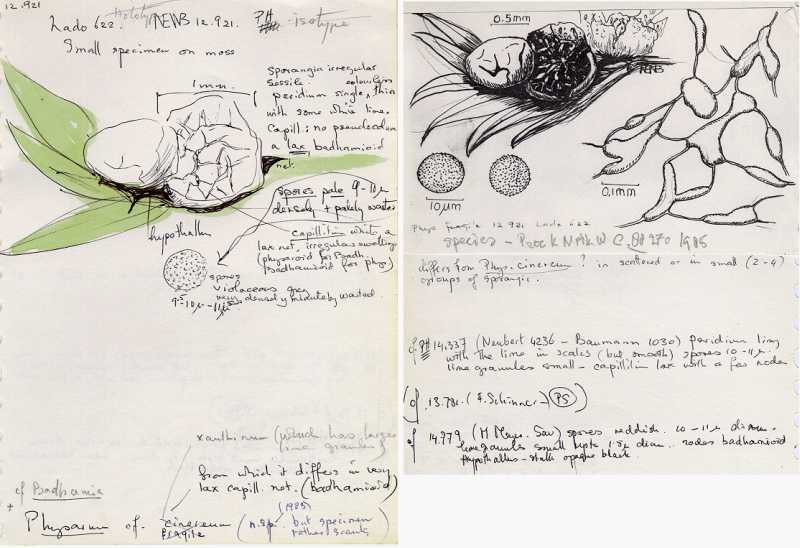 12.921
Holotype
Lado 622. NENB 12.921. PH isotype
Small specimen on moss
1mm
sporangia irregular
sessile. colourless
peridium single, thin
with some white lime.
Capill: no pseudocolum
a lax, badhamioid
net.
spores pale 9-11µ
densely + palely warted
Capillitium white, a
lax net, irregular swellings
(physaroid for Badh.
badhamioid for phys)
hypothallus
spores
violaceous grey
very densely minutely warted
9.5-10µ-11µ
xanthinum (which has larger
lime granules)
from which it differs in very
lax capill. net. (badhamioid)
cf Badhamia
+
Physarum cf. cinereum (n.sp. but specimen
(1985)
fragile rather scanty)
0.5mm
NENB
10µm
0.1mm
Phys fragile 12.921 Lado 622
species - Proc K N Ak W C. 88 270 1985
differs from Phys. cinereum? in scattered or in small (2-4)
groups of sporangia.
cf PH 14.337 (Neubert 4236 - Baumann 1030) peridium limy
with the lime in scales (but smooth) spores 10-11µ.
lime granules small - capillitium lax with a few nodes
(cf. 13.781. (F. Schinner - PS)
cf 14.779 (M Meyer. Sav) spores reddish. 10-11µ diam.
lime granules small upto 1.5µ diam.. nodes badhamioid
hypothallus - stalk opaque black.